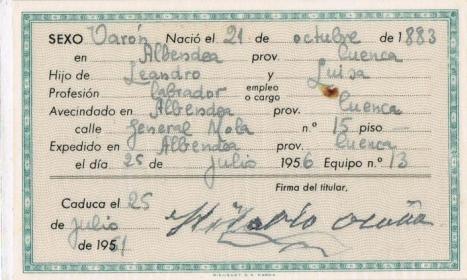 SEXO Varón Nació el 21 de octubre de 1883
en Albendea prov. Cuenca
Hijo de Leandro y Luisa
Profesión Labrador empleo o cargo
Avecindado en Albendea prov. Cuenca
calle General Mola n.º 15 piso —
Expedido en Albendea prov. Cuenca
el día 25 de julio 1956 Equipo n.º 13
Firma del titular,
Caduca el 25
de julio
de 1961